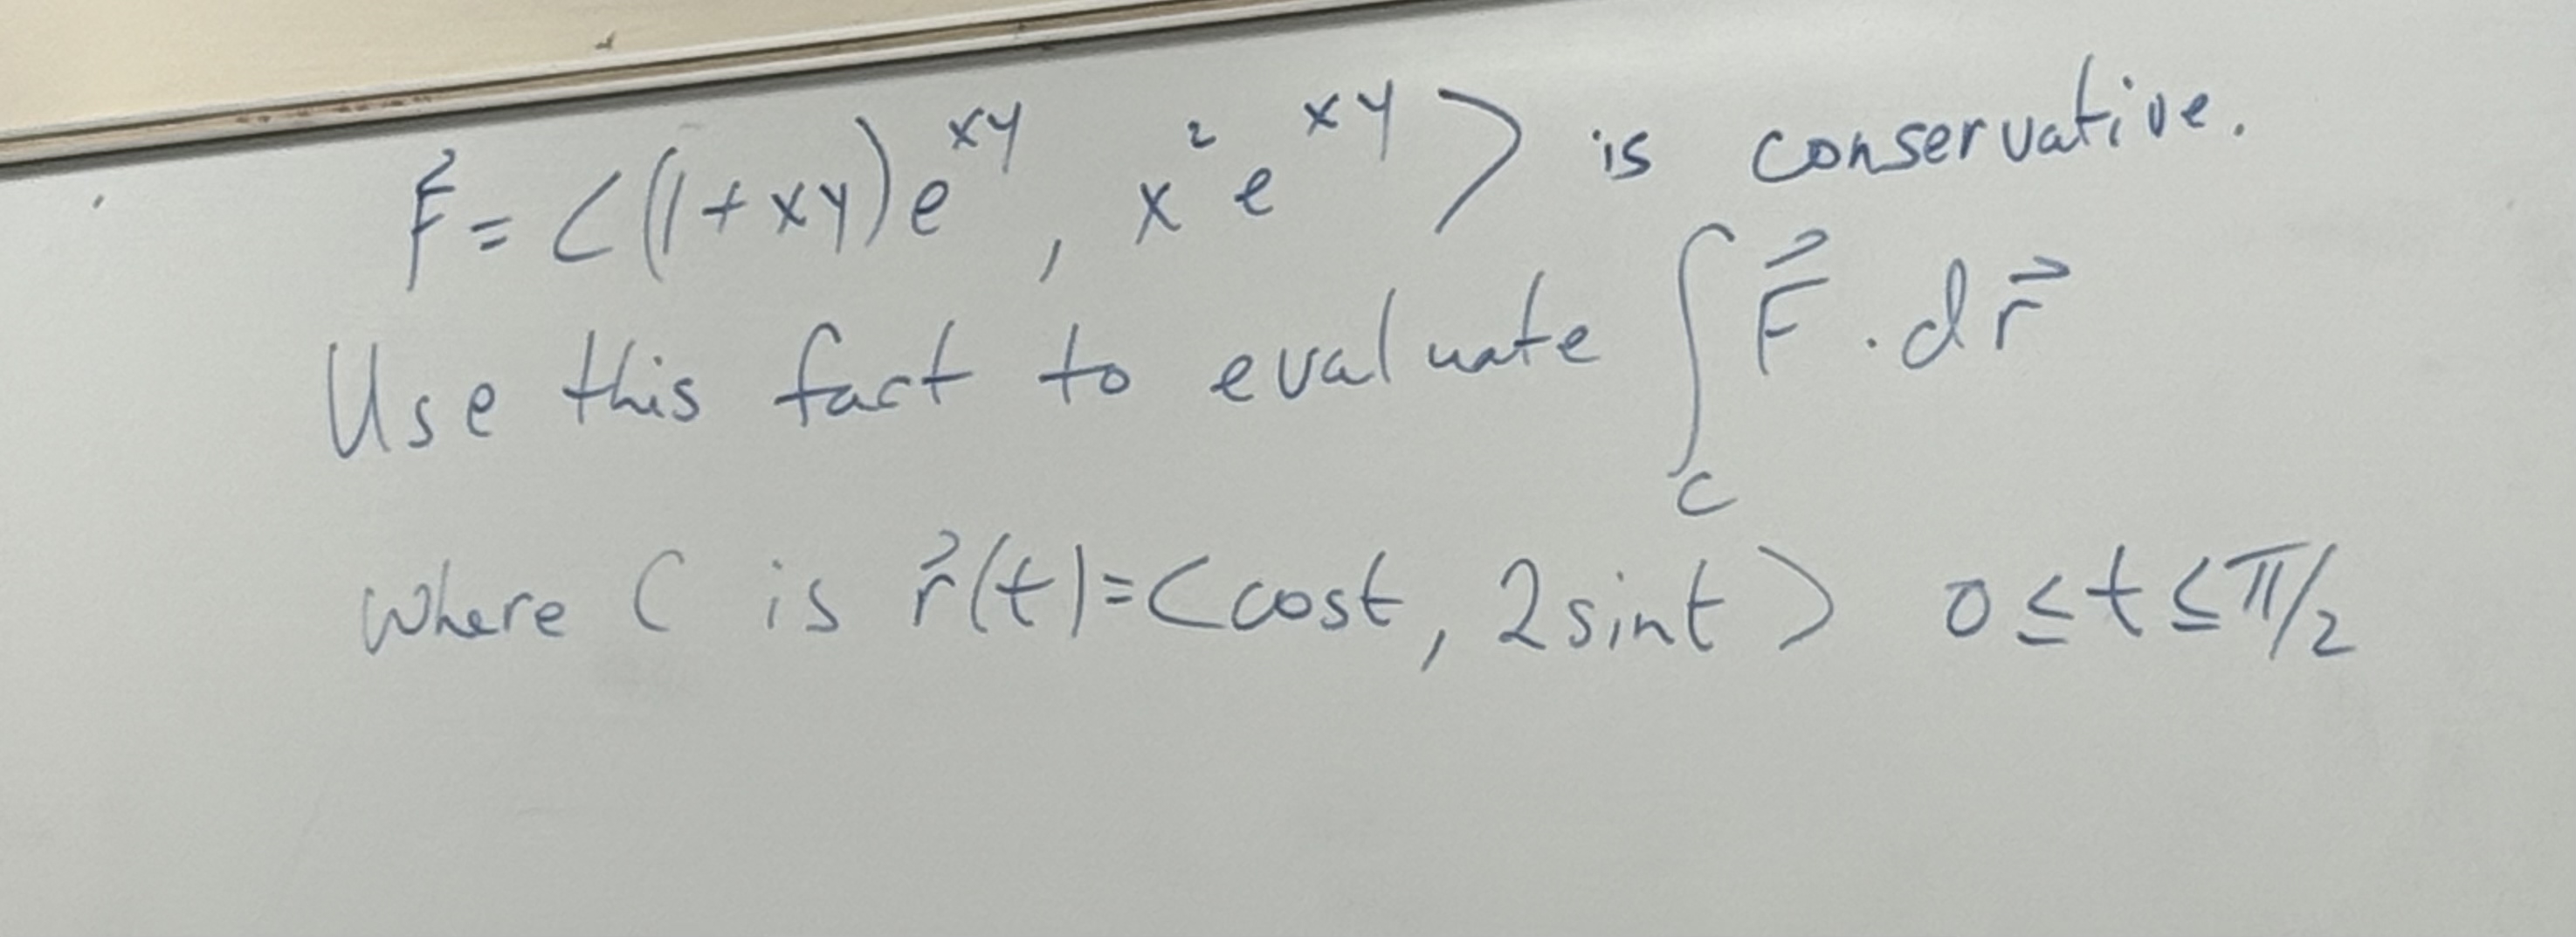 F⃗ = <(1+xy)e^xy, x²e^xy> is conservative.
Use this fact to evaluate ∫_C F⃗ · dr⃗
where C is r⃗(t)=<cost, 2sint> 0≤t≤π/2